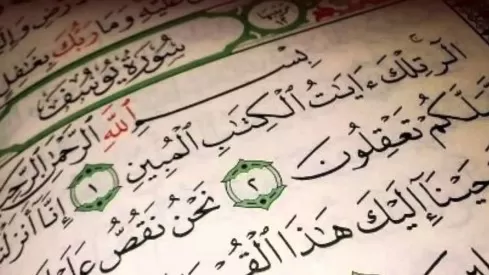 عَلَيْهِ وَمَا رَبُّكَ بِغَٰفِلٍ
سُورَةُ يُوسُفَ
بِسْمِ ٱللَّهِ ٱلرَّحْمَٰنِ ٱلرَّحِيمِ
الٓر تِلْكَ ءَايَٰتُ ٱلْكِتَٰبِ ٱلْمُبِينِ ١ إِنَّآ أَنزَلْ
عَلَّكُمْ تَعْقِلُونَ ٢ نَحْنُ نَقُصُّ عَلَ
حَيْنَآ إِلَيْكَ هَٰذَا ٱلْقُرْ